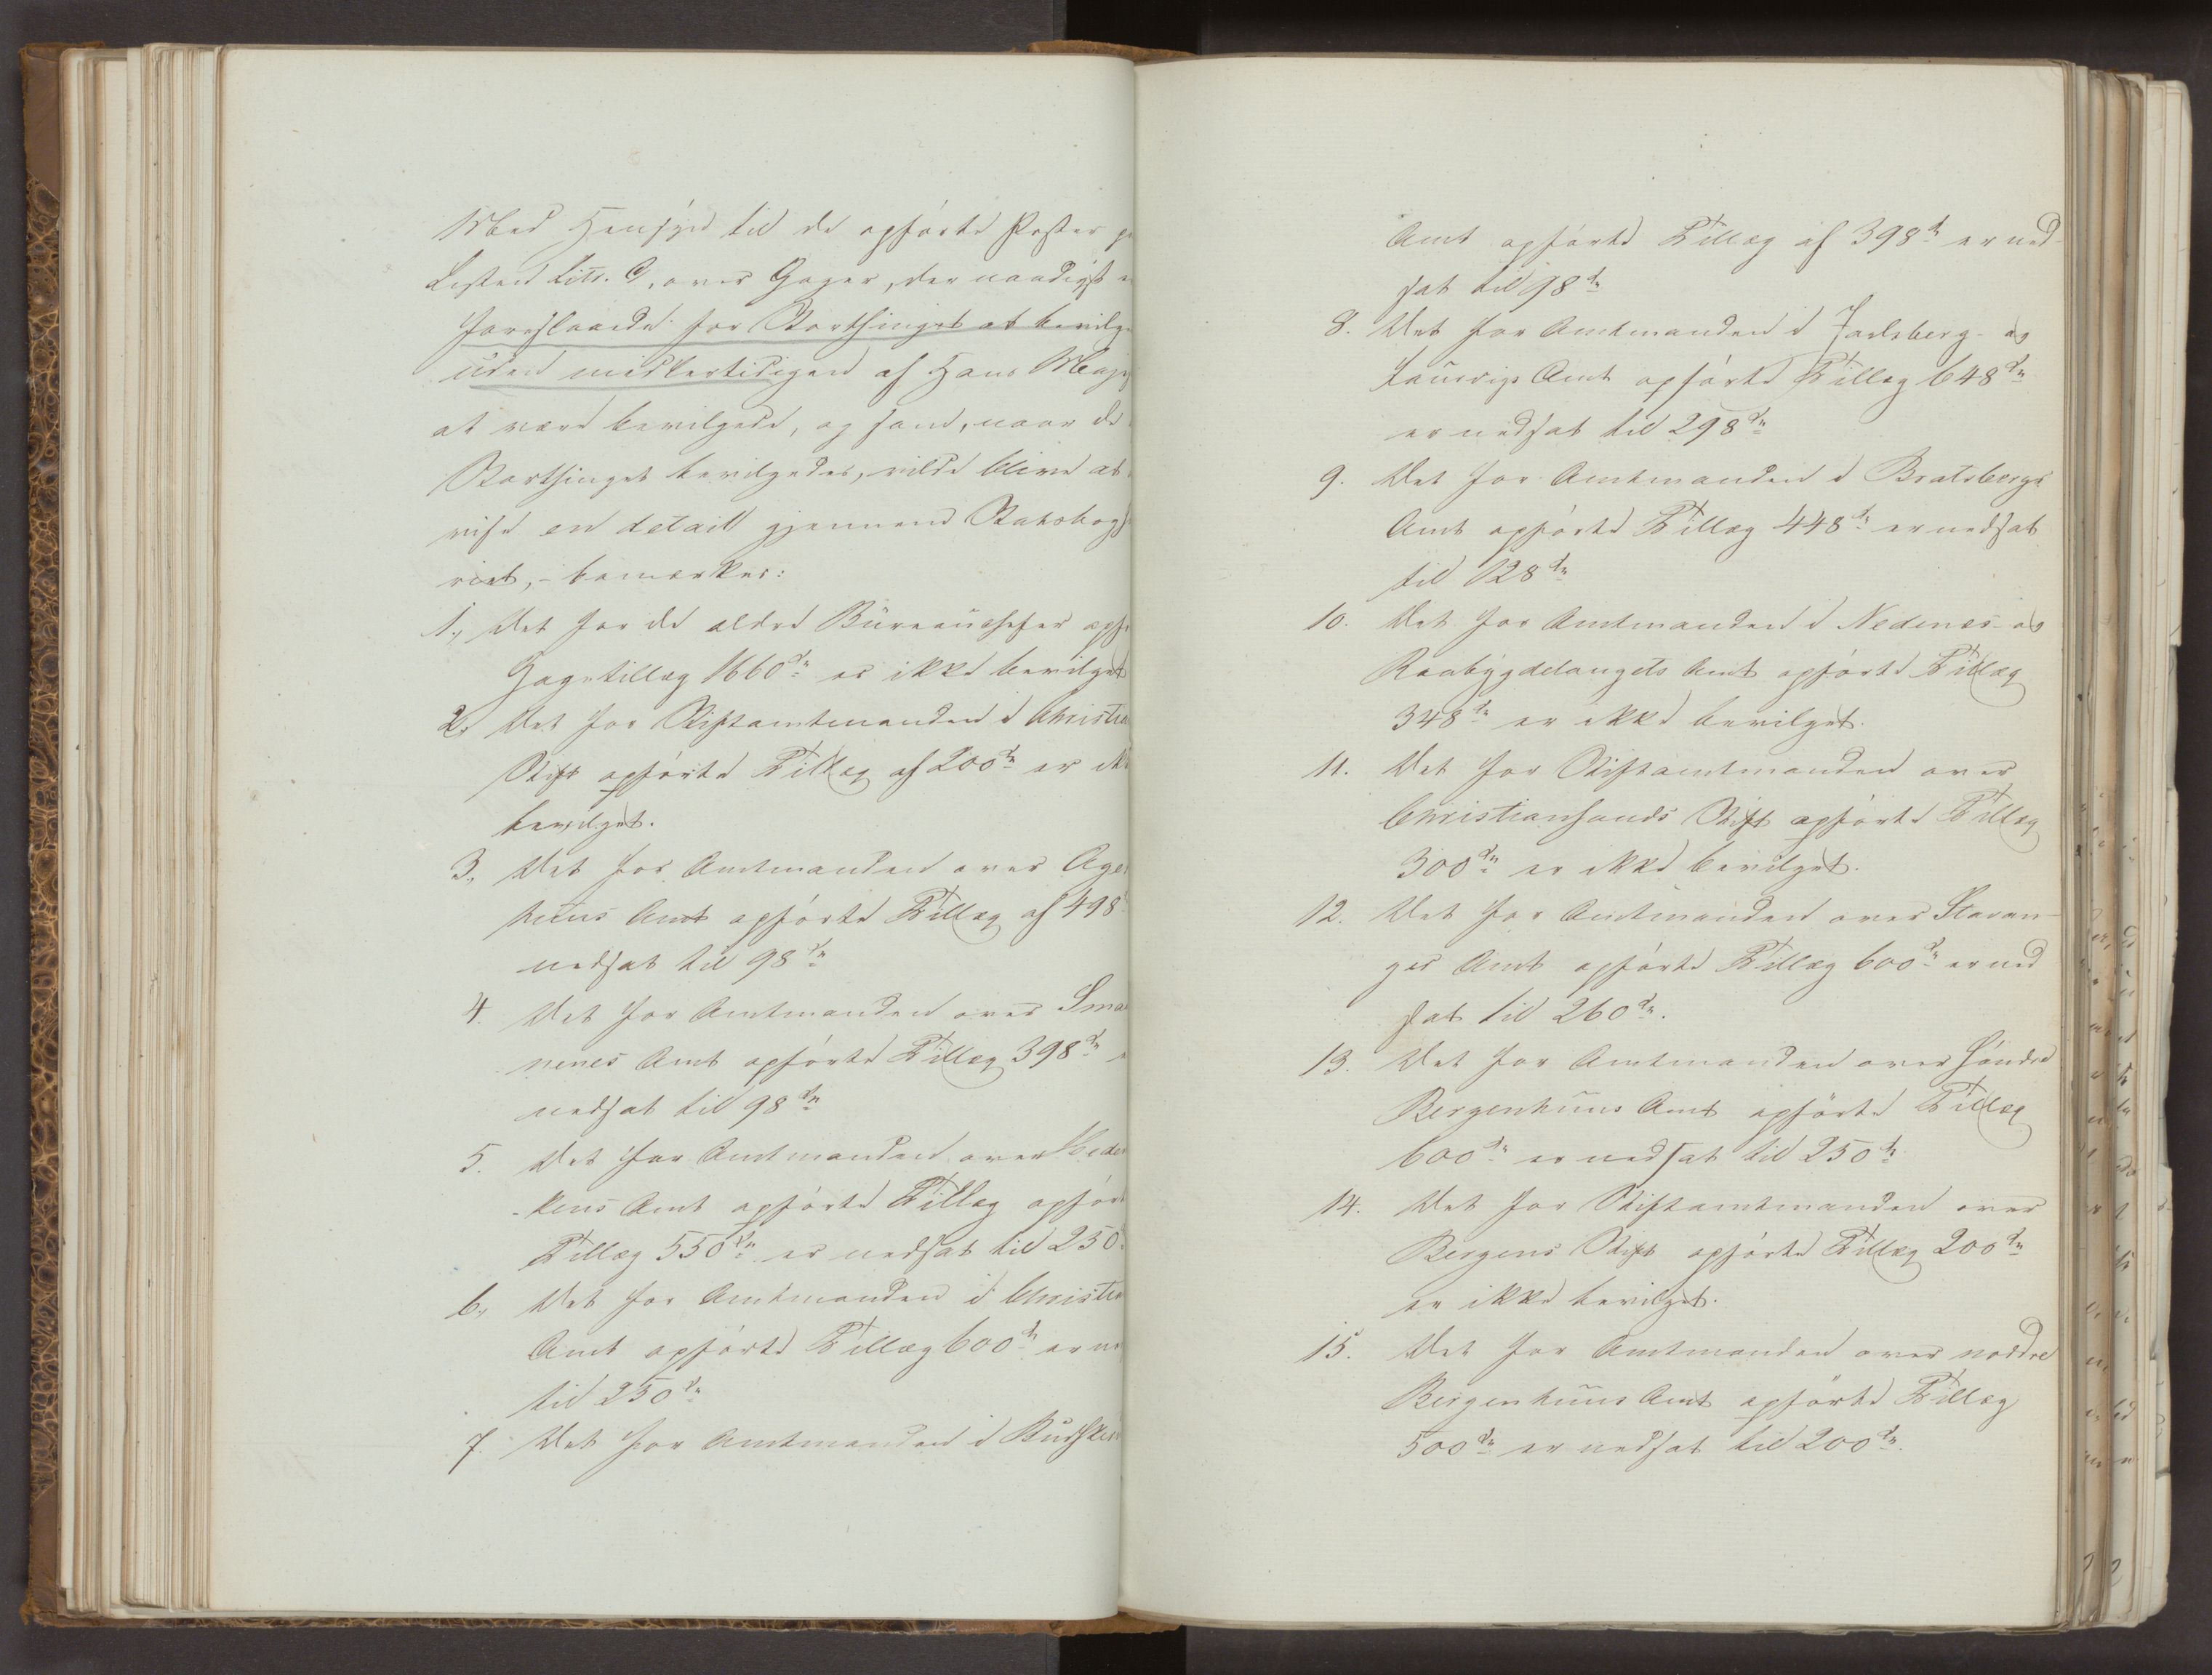 Med Hensyn til de opførte Poster p
Listen Litr. C, over Gager, der naadigst e
foreslaaede for Storthinget at bevilge
uden midlertidigen af Hans Maje
at være bevilgede, og som, naar de
Storthinget bevilgedes, vilde blive at
vise en detail gjennem Statsbogh
riet, - bemærkes:
1., Det for de ældre Büreauchefer opf
Gagetillæg 1660 dr er ikke bevilget
2, Det for Stiftamtmanden i Christia
Stift opførte Tillæg af 200 dr er ikk
bevilget.
3., Det for Amtmanden over Ager
huus Amt opførte Tillæg af 498
nedsat til 98 dr
4. Det for Amtmanden over Smaa
nenes Amt opførte Tillæg 398 dr e
nedsat til 98 dr
5. Det for Amtmanden over Hede
kens Amt opførte Tillæg opfør
Tillæg 550 dr er nedsat til 250
6., Det for Amtmanden i Christia
Amt opførte Tillæg 600 dr er ne
til 250 dr
7. Det for Amtmanden i Budske
Amt opførte Tillæg af 398 dr er ned-
sat til 98 dr
8. Det for Amtmanden i Jarlsberg- og
Laurvigs Amt opførte Tillæg 648 dr
er nedsat til 298 dr
9. Det for Amtmanden i Bratsbergs
Amt opførte Tillæg 448 dr er nedsat
til 128 dr
10. Det for Amtmanden i Nedenæs- og
Raabygdelaugets Amt opførte Tillæg
348 dr er ikke bevilget.
11. Det for Stiftamtmanden over
Christiansands Stift opførte Tillæg
300 dr er ikke bevilget.
12. Det for Amtmanden over Stavan-
ger Amt opførte Tillæg 600 dr er ned
sat til 260 dr.
13. Det for Amtmanden over søndre
Bergenhuus Amt opførte Tillæg
600 dr er nedsat til 250 dr
14. Det for Stiftamtmanden over
Bergens Stift opførte Tillæg 200 dr
er ikke bevilget.
15. Det for Amtmanden over nordre
Bergenhuus Amt opførte Tillæg
500 dr er nedsat til 200 dr.